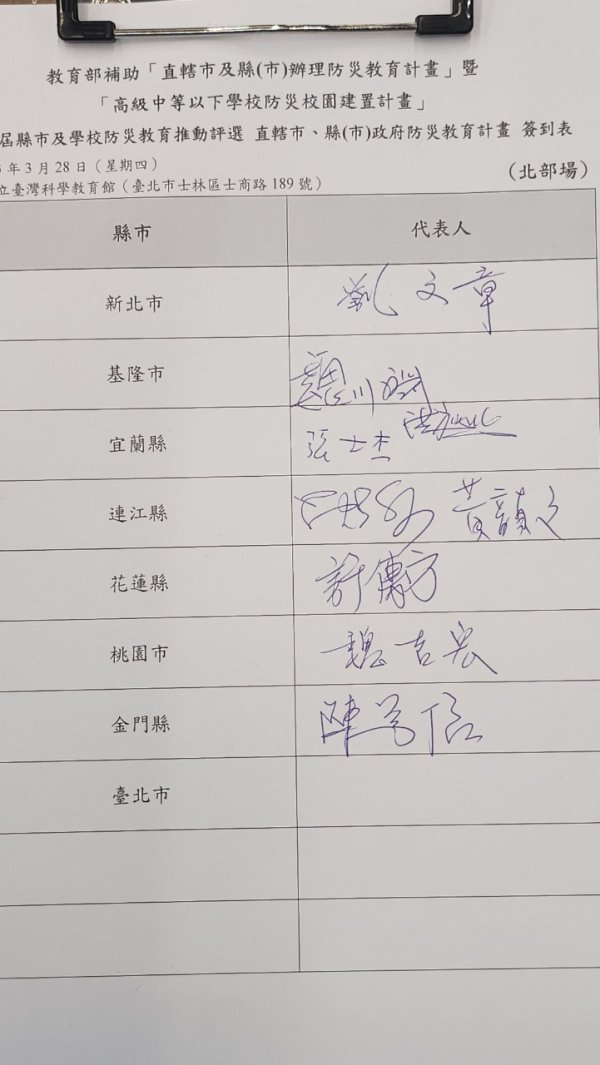 教育部補助「直轄市及縣(市)辦理防災教育計畫」暨
「高級中等以下學校防災校園建置計畫」
屆縣市及學校防災教育推動評選 直轄市、縣(市)政府防災教育計畫 簽到表
年3月28日(星期四)
立臺灣科學教育館(臺北市士林區士商路189號)
(北部場)
縣市 代表人
新北市 劉文章
基隆市
宜蘭縣 張士杰
連江縣 黃
花蓮縣 許傳方
桃園市 魏吉宏
金門縣 陳 信
臺北市